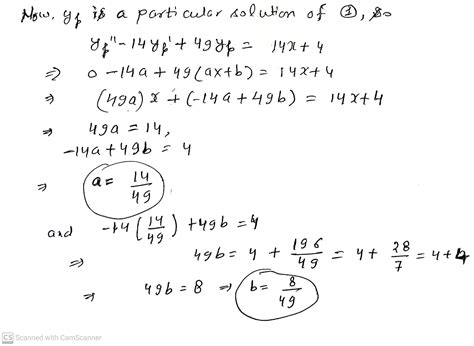 Now, yp is a particular solution of ①, so
yp'' - 14yp' + 49yp = 14x + 4
⇒ 0 - 14a + 49(ax+b) = 14x + 4
⇒ (49a)x + (-14a + 49b) = 14x + 4
⇒ 49a = 14,
-14a + 49b = 4
⇒ a = 14/49
and -14(14/49) + 49b = 4
⇒ 49b = 4 + 196/49 = 4 + 28/7 = 4 + 4
⇒ 49b = 8 ⇒ b = 8/49
CS Scanned with CamScanner